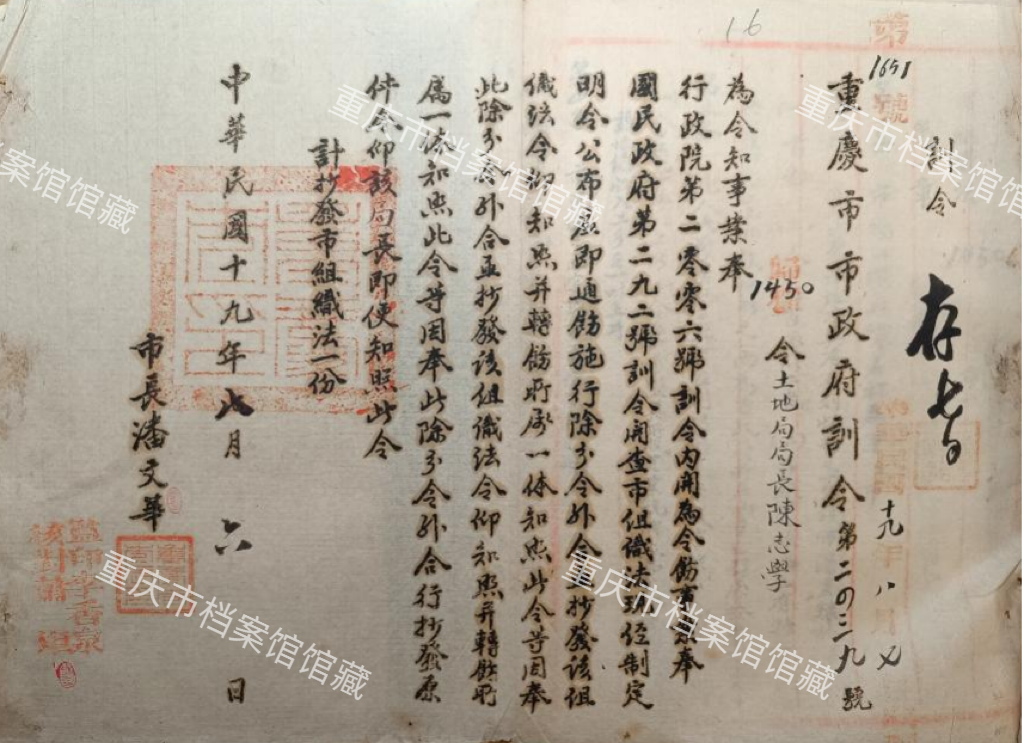 第1651號
16
訓令
存
十九年八月
重慶市市政府訓令第二〇三九號
令土地局局長陳志學
1450
為令知事案奉
行政院第二零零六號訓令內開為令飭事案奉
國民政府第二九二號訓令開查市組織法現經制定
明令公布應即通飭施行除分令外合亟抄發該組
織法令仰知照并轉飭所屬一体知照此令等因奉
此除分令外合亟抄發該組織法令仰知照并轉飭所
屬一体知照此令等因奉此除分令外合行抄發原
件令仰該局長即便知照此令
計抄發市組織法一份
中華民國十九年七月六日
市長潘文華
監印李香泉
校對蕭
重庆市档案馆馆藏
重庆市档案馆馆藏
重庆市档案馆馆藏
重庆市档案馆馆藏
重庆市档案馆馆藏